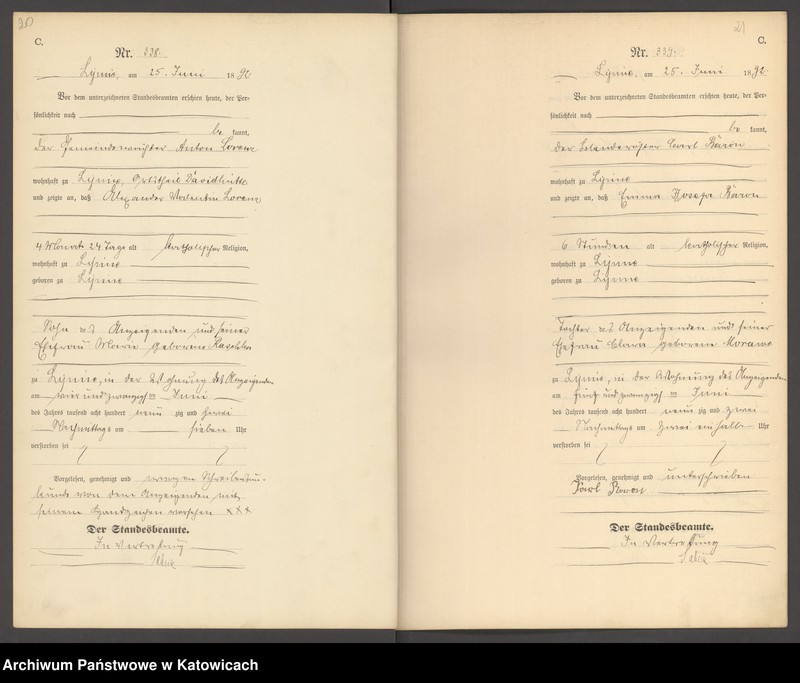 20
C.
Nr. 338.
Lipine, am 25. Juni 1892
Vor dem unterzeichneten Standesbeamten erschien heute, der Per-
sönlichkeit nach
be kannt,
der Anton Lorenz
wohnhaft zu Lipine, Ortstheil Davidhütte
und zeigte an, daß Alexander Valentin Lorenz
4 Monat 24 Tage alt katholischer Religion,
wohnhaft zu Lipine
geboren zu Lipine
Sohn des Anzeigenden und seiner
Ehefrau Marie geborene
zu Lipine, in der Wohnung des Anzeigenden
am vier und zwanzigsten Juni
des Jahres tausend acht hundert neun zig und zwei
Nachmittags um sieben Uhr
verstorben sei
Vorgelesen, genehmigt und wegen Schreibensun-
kunde von dem Anzeigenden mit
seinem Handzeichen versehen XXX
Der Standesbeamte.
In Vertretung
21
C.
Nr. 339.
Lipine, am 25. Juni 1892
Vor dem unterzeichneten Standesbeamten erschien heute, der Per-
sönlichkeit nach
be kannt,
der Carl Baron
wohnhaft zu Lipine
und zeigte an, daß Emma Josefa Baron
6 Stunden alt katholischer Religion,
wohnhaft zu Lipine
geboren zu Lipine
Tochter des Anzeigenden und seiner
Ehefrau Clara geborene
zu Lipine, in der Wohnung des Anzeigenden
am fünf und zwanzigsten Juni
des Jahres tausend acht hundert neun zig und zwei
Nachmittags um zwei einhalb Uhr
verstorben sei
Vorgelesen, genehmigt und unterschrieben
Karl Baron
Der Standesbeamte.
In Vertretung
Archiwum Państwowe w Katowicach